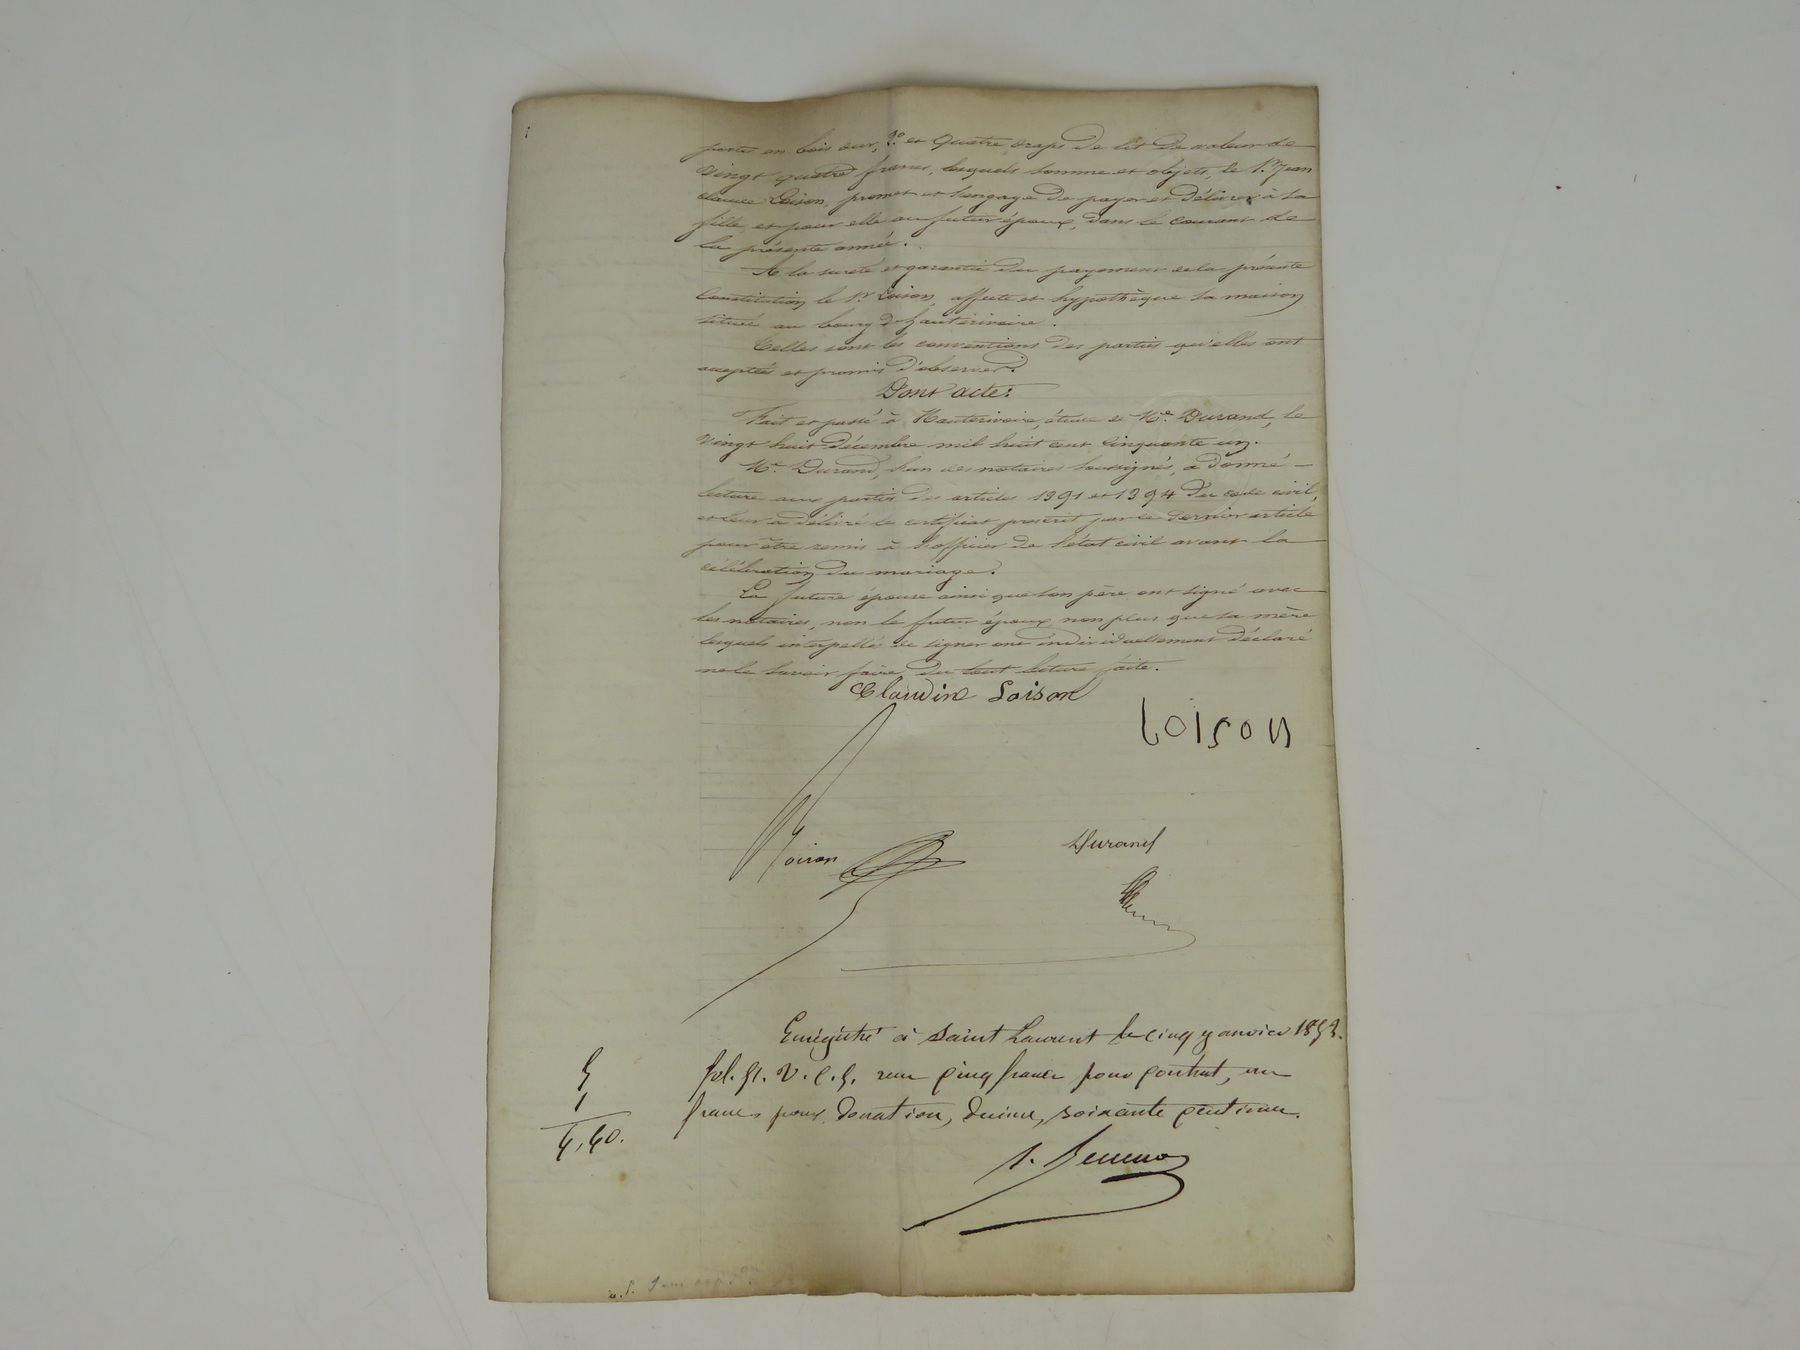 porte en bois dur, 3° et quatre draps de lit de valeur de
vingt quatre francs, lesquels somme et objets, le Sr. Jean
Claude Loison, promet et s'engage de payer et délivrer à sa
fille, et pour elle au futur époux, dans le courant de
la présente année.
A la sureté et garantie du payement de la présente
Constitution, le Sr. Loison, affecte et hypothèque sa maison
située au bourg d'hauterivoire.
Telles sont les conventions des parties qu'elles ont
acceptés et promis d'observer.
Dont acte:
Fait et passé à Hauterivoire, étude de Me. Durand, le
vingt huit décembre mil huit cent cinquante un.
Me. Durand, l'un des notaires soussignés, a donné
lecture aux parties des articles 1391 et 1394 du code civil,
et leur a délivré le certificat prescrit par ce dernier article
pour être remis à l'officier de l'état civil avant la
célébration du mariage.
La future épouse ainsi que son père ont signé avec
les notaires, non le futur époux non plus que sa mère
lesquels interpellés de signer ont individuellement déclaré
ne le savoir faire du tout lecture faite.
Claudine Loison
Loison
Durand
Enregistré à Saint Laurent le cinq janvier 185
fol. V. C. 5. reçu cinq francs pour contrat, un
franc pour donation, décime, soixante centimes.
5
1